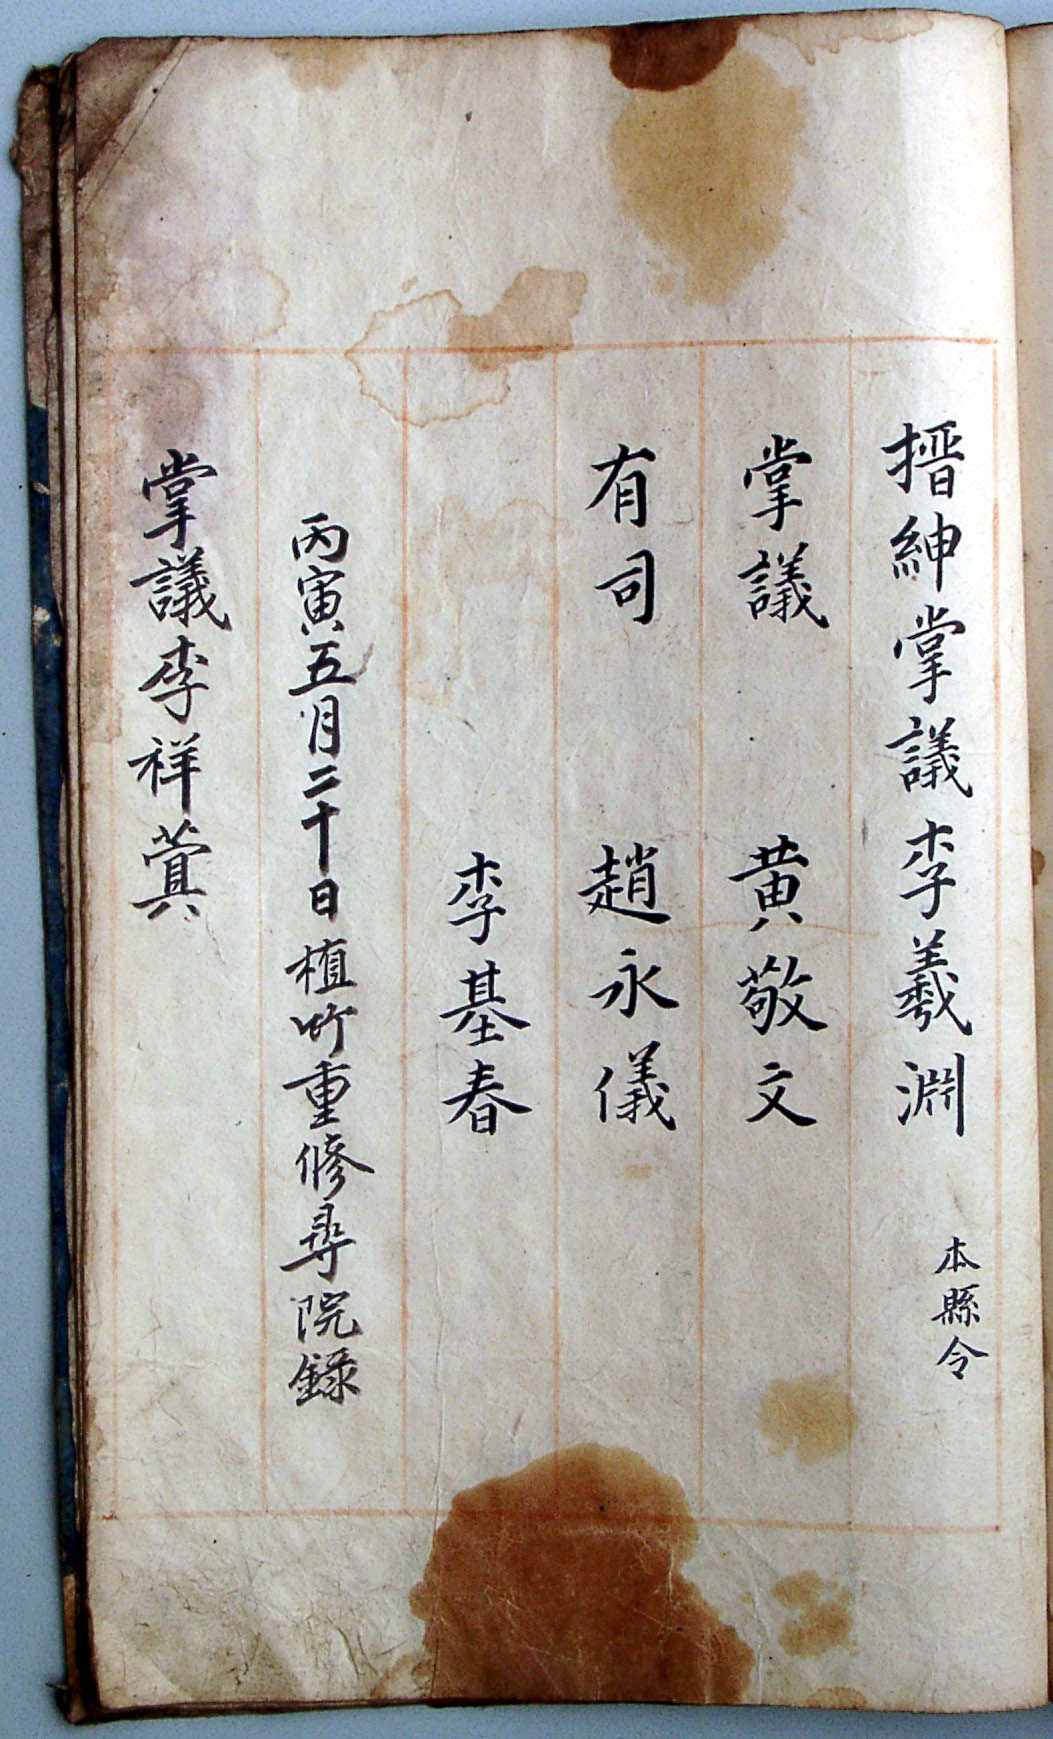 搢紳掌議李羲淵 本縣令
掌議 黃敬文
有司 趙永儀
李基春
丙寅五月二十日植竹重修尋院錄
掌議李祥蓂